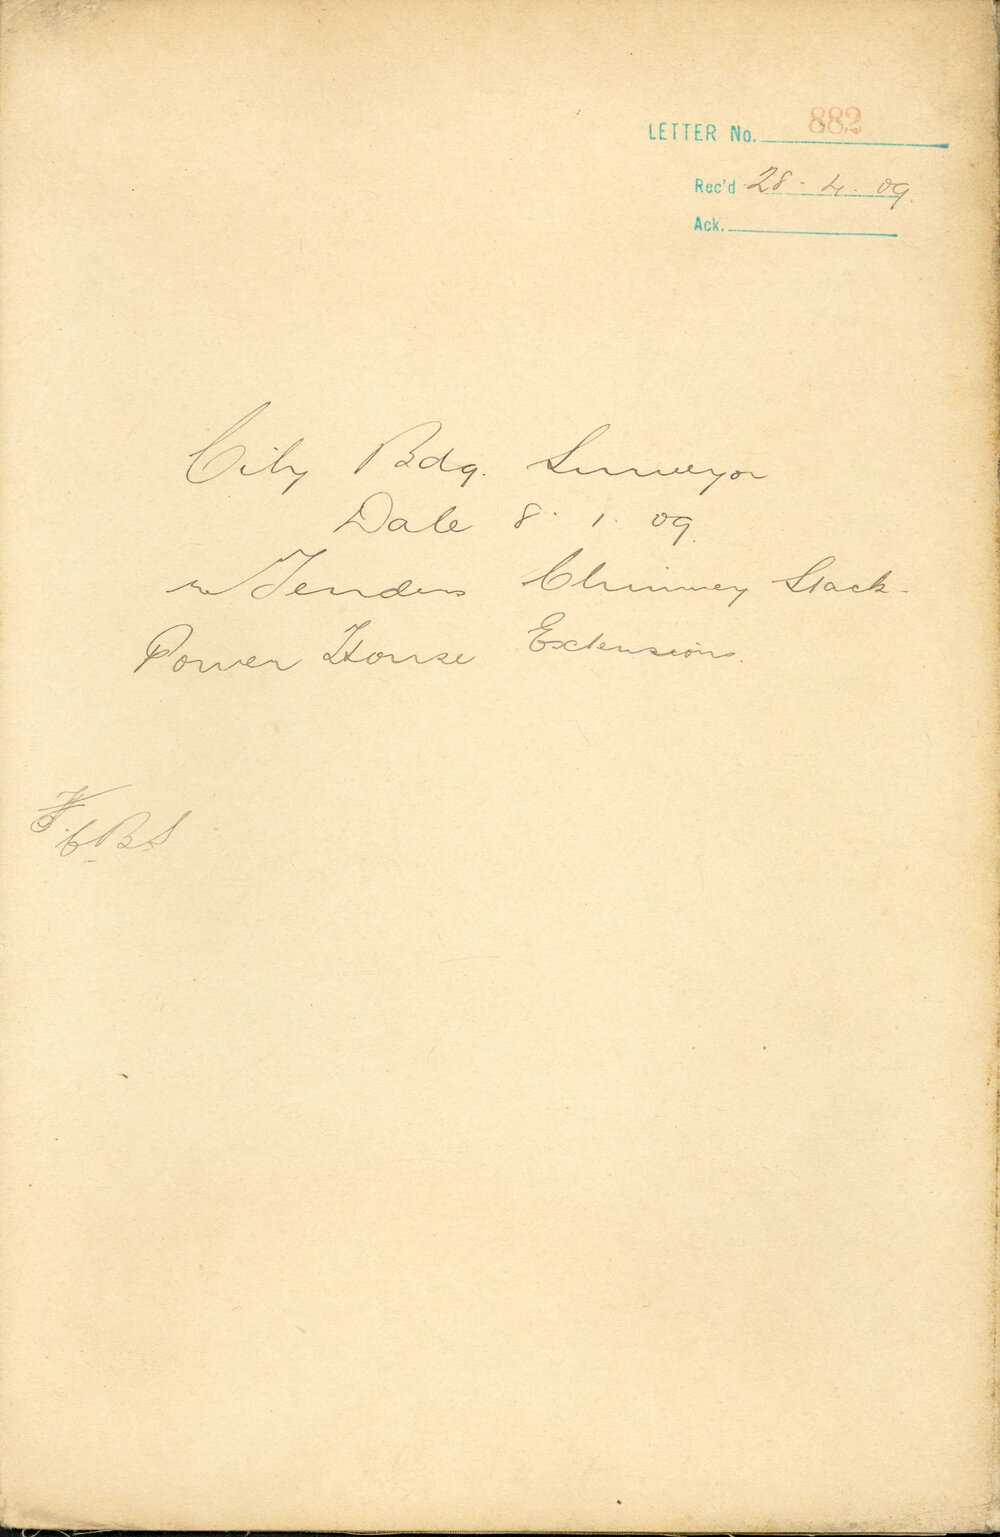 LETTER No. 882
Rec'd 28 - 4 - 09.
Ack.
City Bdg. Surveyor
Date 8. 1. 09.
re Tenders Chimney Stack -
Power House Extensions.
C.B.S